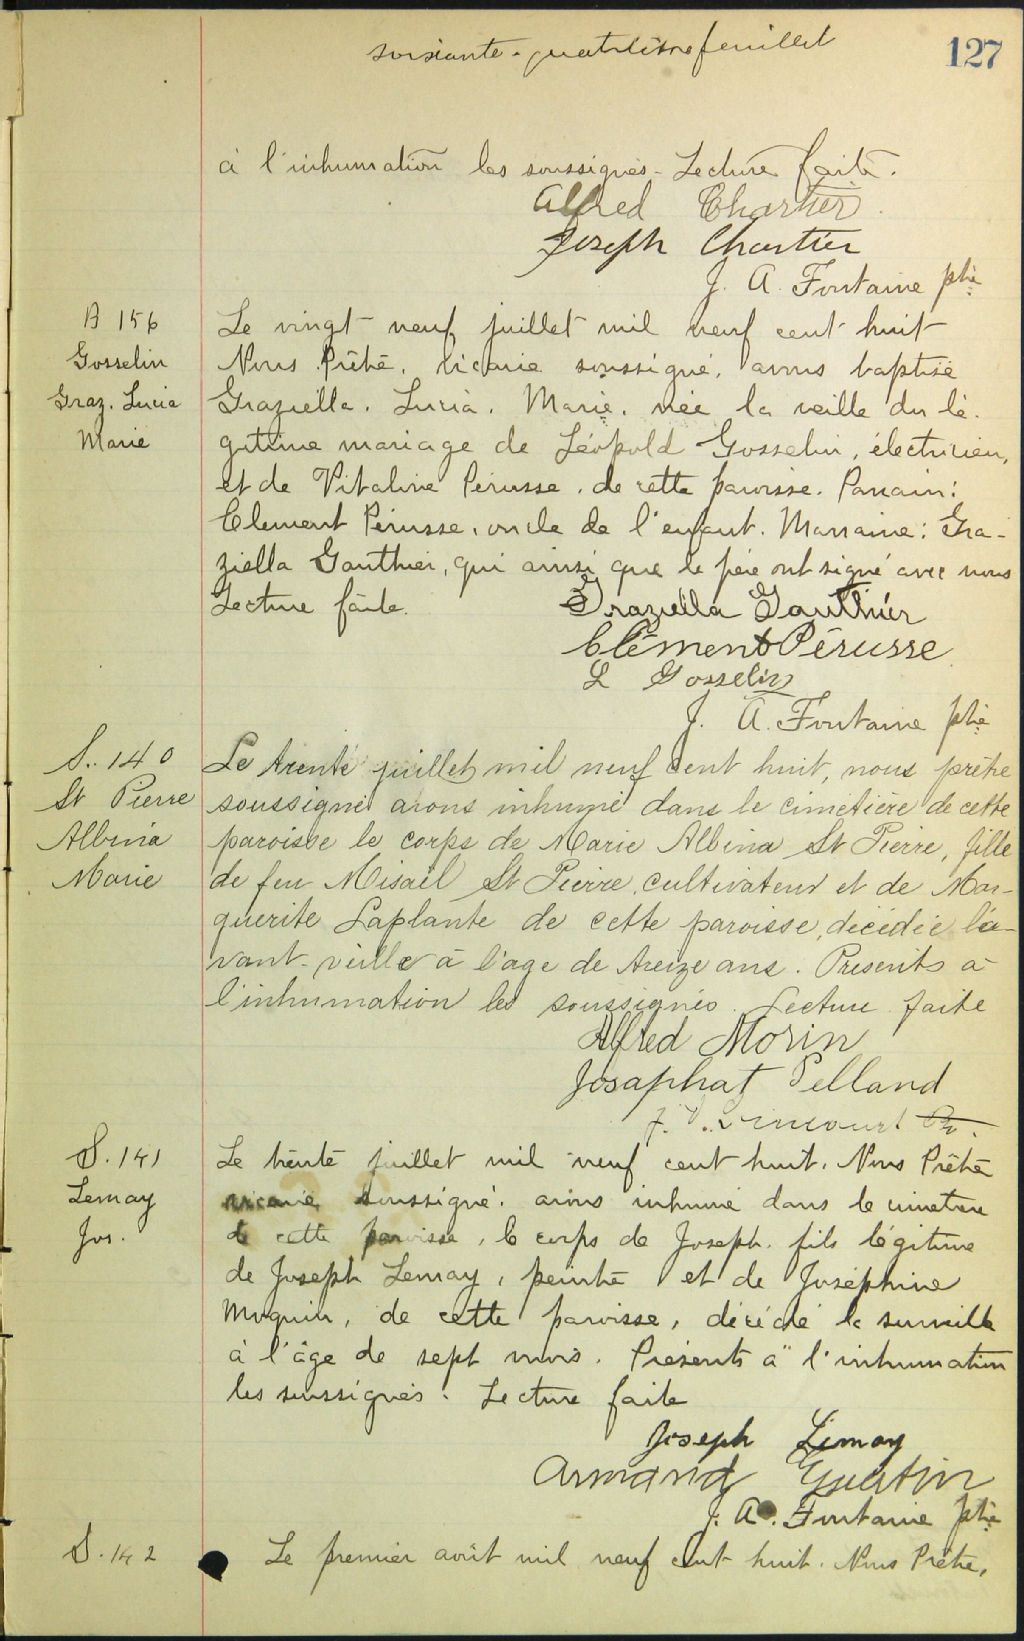 soixante-quatrième feuillet
127
à l'inhumation les soussignés. Lecture faite.
Alfred Chartier
Joseph Chartier
J. A. Fontaine ptre
B 156
Gosselin
Graz. Lucia
Marie
Le vingt neuf juillet mil neuf cent huit
Nous Prêtre, vicaire soussigné, avons baptisé
Graziella. Lucia. Marie. née la veille du lé-
gitime mariage de Léopold Gosselin, électricien,
et de Vitaline Pérusse, de cette paroisse. Parrain:
Clement Pérusse, oncle de l'enfant. Marraine: Gra-
ziella Gauthier, qui ainsi que le père ont signé avec nous
Lecture faite.
Graziella Gauthier
Clément Pérusse
L Gosselin
J. A. Fontaine ptre
S. 140
St Pierre
Albina
Marie
Le trente juillet mil neuf cent huit, nous prêtre
soussigné avons inhumé dans le cimetière de cette
paroisse le corps de Marie Albina St Pierre, fille
de feu Misaël St Pierre, cultivateur et de Mar-
guerite Laplante de cette paroisse, décédée l'a-
vant-veille à l'age de treize ans. Presents à
l'inhumation les soussignés. Lecture faite
Alfred Morin
Josaphat Pelland
S. 141
Lemay
Jos.
Le trente juillet mil neuf cent huit. Nous Prêtre
vicaire soussigné. avons inhumé dans le cimetière
de cette paroisse, le corps de Joseph. fils légitime
de Joseph Lemay, peintre et de Joséphine
Moquin, de cette paroisse, décédé la surveille
à l'âge de sept mois. Présents à l'inhumation
les soussignés. Lecture faite
Joseph Lemay
Armand Guertin
J. A. Fontaine ptre
S. 142
Le premier août mil neuf cent huit. Nous Prêtre,